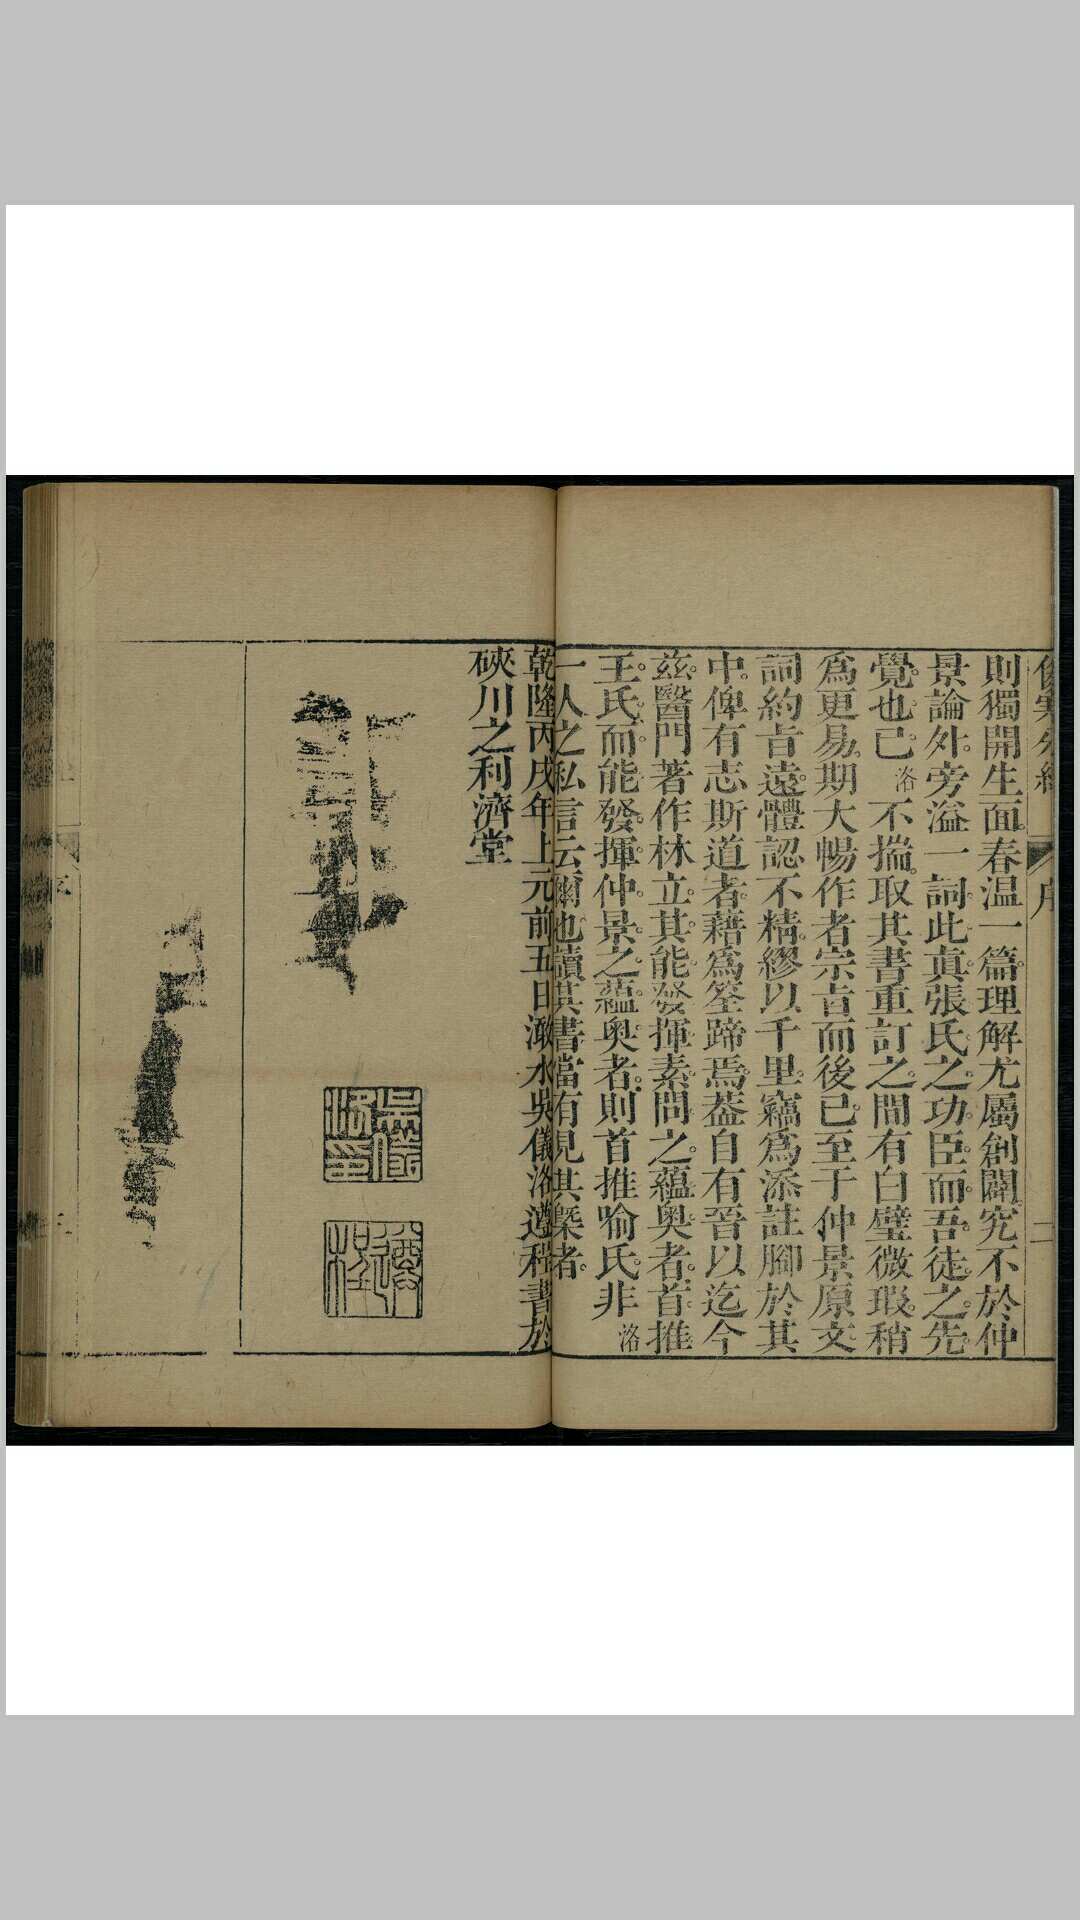 傷寒分經
序
二
則獨開生面。春温一篇。理解尤屬創闢。究不於仲
景論外。旁溢一詞。此眞張氏之功臣。而吾徒之先
覺也。已洛不揣。取其書重訂之。間有白璧微瑕。稍
爲更易。期大暢作者宗旨而後已。至于仲景原文
詞約旨遠。體認不精。繆以千里。竊爲添註腳於其
中。俾有志斯道者。藉爲筌蹄焉。蓋自有晉以迄今
兹。醫門著作林立。其能發揮素問之蘊奥者。首推
王氏。而能發揮仲景之蘊奥者。則首推喻氏。非洛
一人之私言云爾也。讀其書當有見其槩者。
乾隆丙戌年上元前五日澉水吳儀洛遵程書於
硤川之利濟堂
吳儀洛印
遵程
序
三